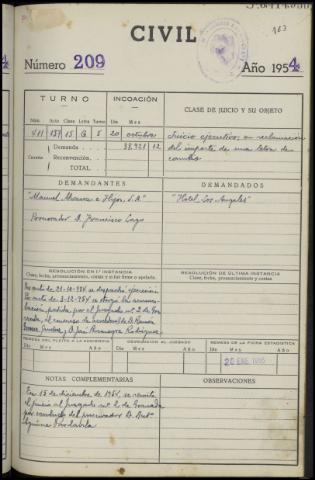 183
CIVIL
Número 209
Año 1954
TURNO
INCOACIÓN
CLASE DE JUICIO Y SU OBJETO
Núm. Rollo Clase Letra Turno Día Mes
411 157 15 G 5 20 octubre
Demanda 38,921 12
Cuantía Reconvención
TOTAL
Juicio ejecutivo, en reclamación
del importe de una letra de
cambio
DEMANDANTES
"Manuel Alvarez e Hijos, S.A"
Procurador D. Francisco
DEMANDADOS
"Hotel Los Angeles"
RESOLUCIÓN EN 1ª INSTANCIA
Clase, fecha, pronunciamiento, costas y si fué firme o apelada.
En auto de 21-10-954 se despachó ejecución
En auto de 3-12-954 se otorgó la acumu-
lación, pedida por el juzgado nº 2 de Gra-
nada, al concurso de acreedores de D. Ramón
y D. José Rodríguez
RESOLUCIÓN DE ÚLTIMA INSTANCIA
Clase, fecha, pronunciamiento y costas
REMESA DEL PLEITO A LA AUDIENCIA
Día Mes Año
DEVOLUCIÓN AL JUZGADO
Día Mes Año
REMESA DE LA FICHA ESTADÍSTICA
Día Mes Año
20 ENE. 1955
NOTAS COMPLEMENTARIAS
En 15 de diciembre de 1954, se remite
el juicio al Juzgado nº 2 de Granada
por conducto del procurador D. Antº
OBSERVACIONES